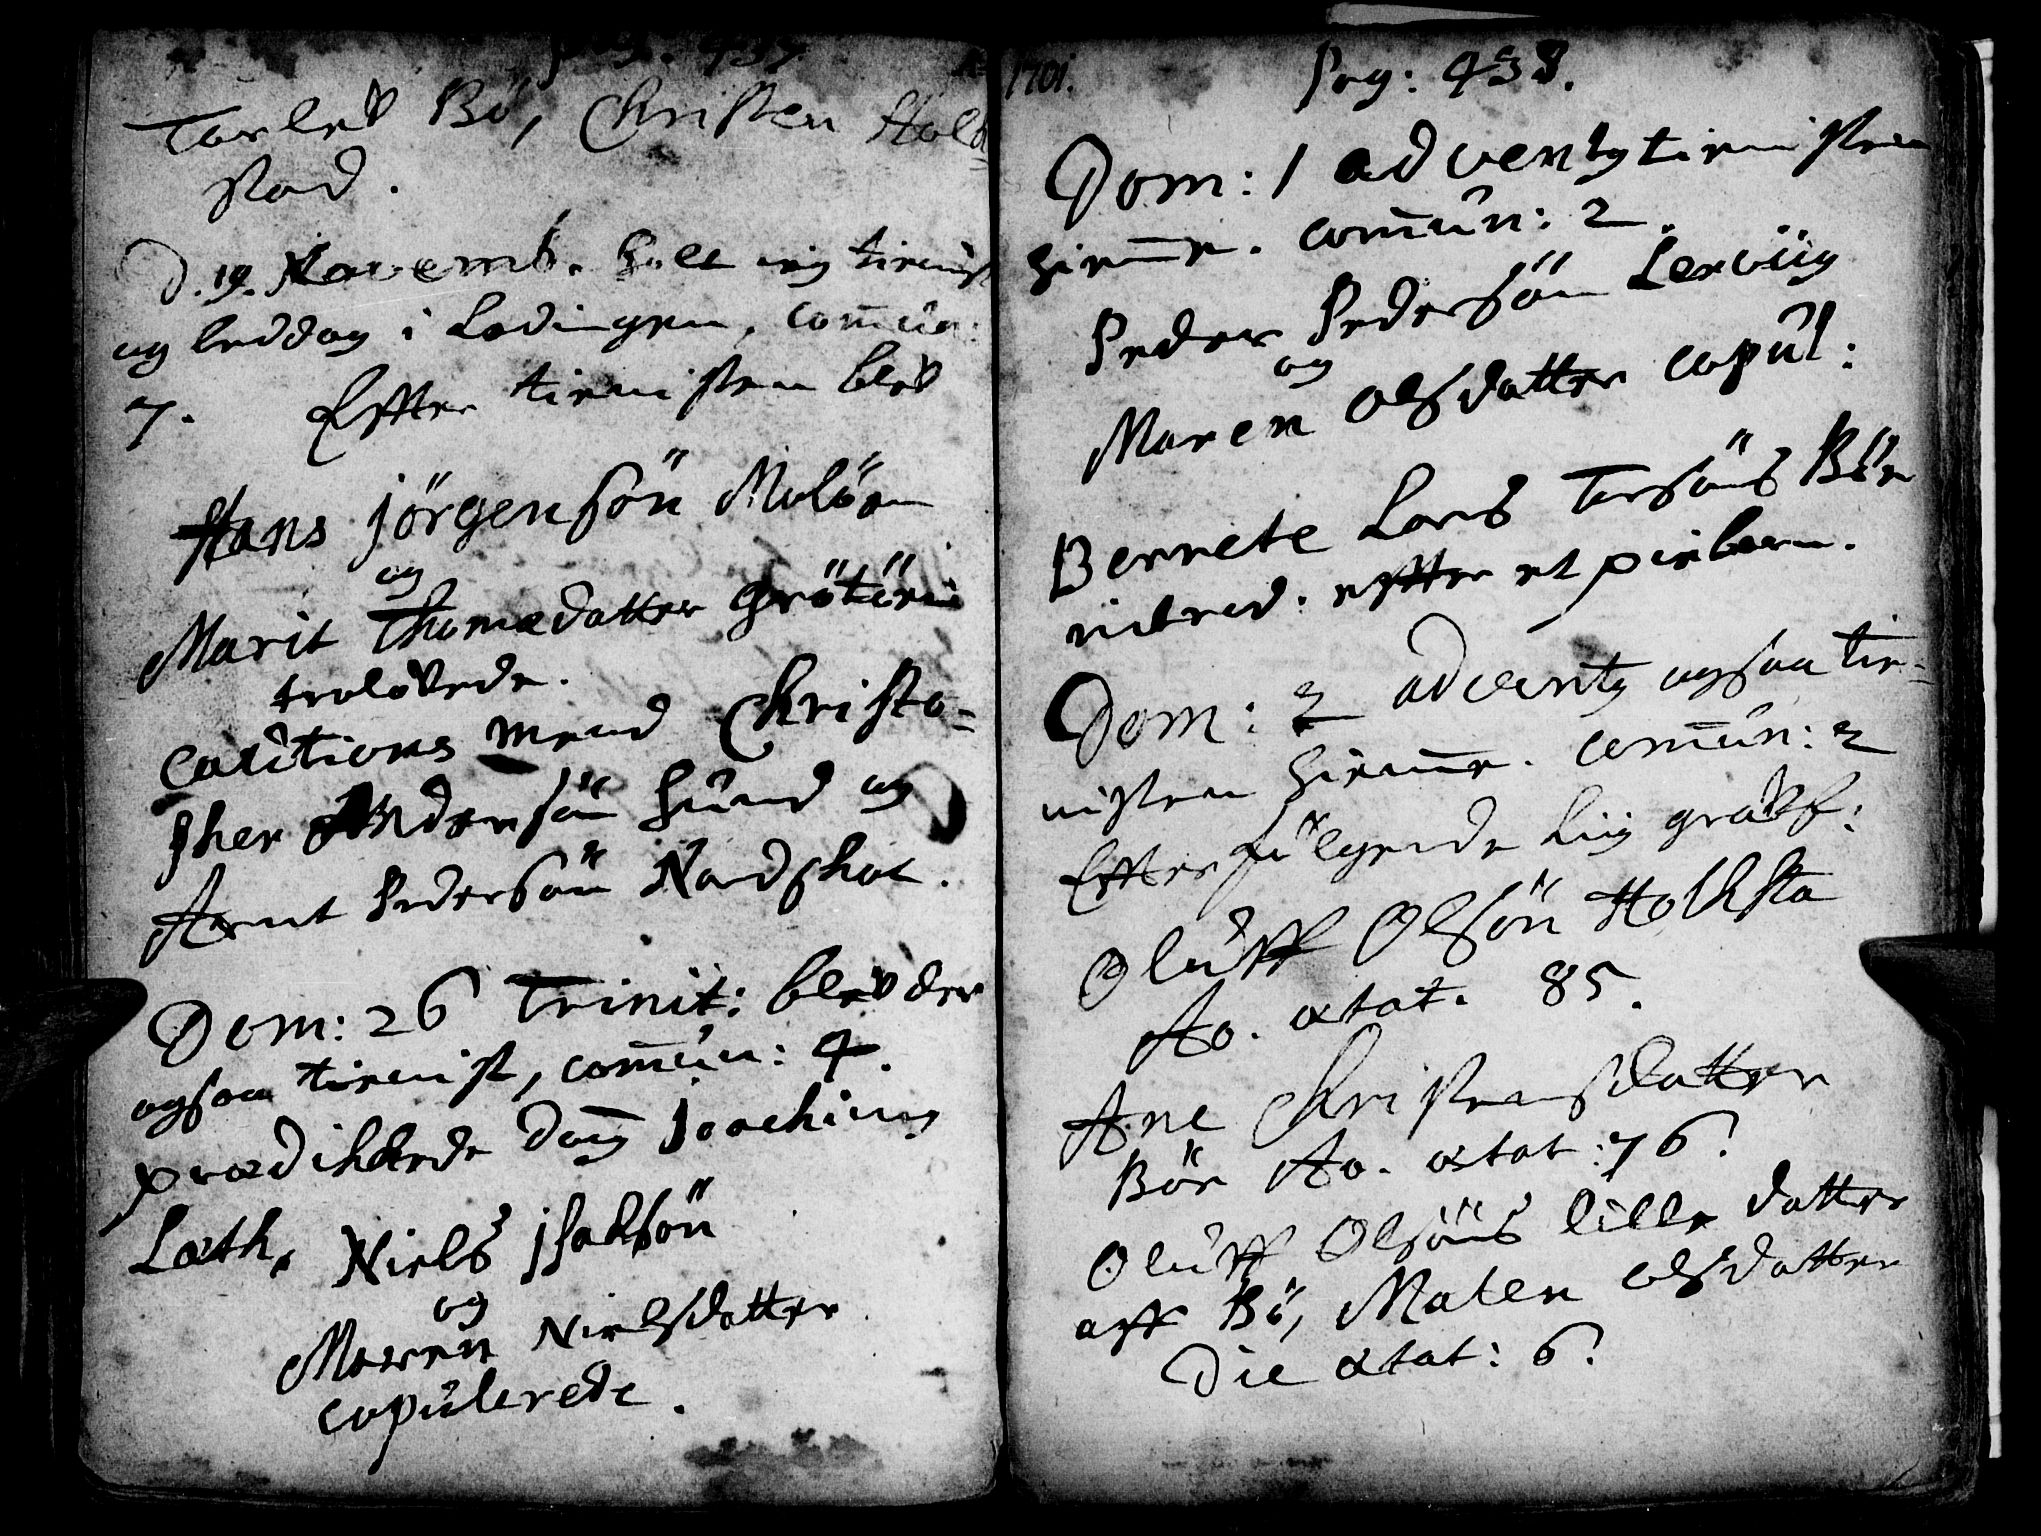 pag: 437.
Torlef Bö, Christen Hold=
stad.
D. 19. Novemb. holt ieg tienist
og beddag i Lødingen, com̄un:
7. Effter tienisten blef
Hans Jörgensön Molöen
og
Marit Thomædatter Grötöen
trolovede.
Cautions mend Christo=
pher Andersön Hund og
Arnt Pedersön Nordschot.
Dom: 26 Trinit: blef der
ogsaa tienist, com̄un: 4.
prædichede Joachim
Lœth. Niels Isachsön
og
Maren Nielsdatter
copulerede.
Ao 1701. Pag: 438.
Dom: 1 advents tienisten
hiem̄e. com̄un: 2.
Peder Pedersön Lervüg
og
Maren Olsdatter copul:
Berrete Lars Torsöns Böe
introd. effter et pieebarn.
Dom: 2 advents ogsaa tie=
nisten hiem̄e. com̄un: 2
Effterfülgende Liig graff:
Oluff Olsön Holchsta
Ao. ætat. 85.
Ane Christensdatter
Böe Ao. ætat: 76.
Oluff Olsöns lille datter
aff Bö, Malen Olsdatter
Die ætat: 6.